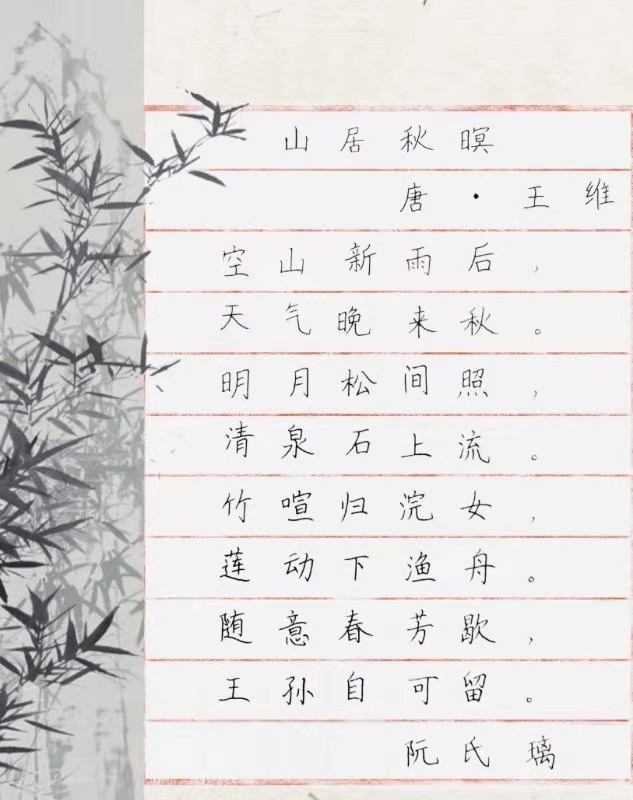 山居秋暝
唐·王维
空山新雨后，
天气晚来秋。
明月松间照，
清泉石上流。
竹喧归浣女，
莲动下渔舟。
随意春芳歇，
王孙自可留。
阮氏璃